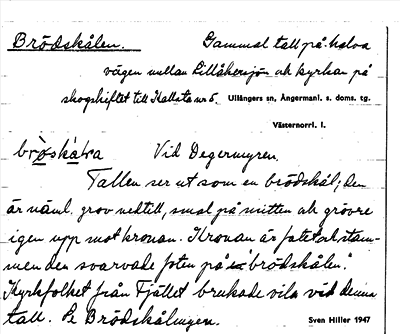 Brödskålen. Gammal tall på halva
vägen mellan Lillåkersjön ock kyrkan på
skogskiftet till Kallsta nr 5. Ullångers sn, Ångermanl. s. doms. tg.
Västernorrl. l.
brö̀skàɷa Vid Degermyren.
Tallen ser ut som en brödskål; den
är näml. grov nedtill, smal på mitten ock grövre
igen upp mot kronan. Kronan är fatet ock stam-
men den svarvade foten på "brödskålen".
Kyrkfolket från Fjället brukade vila vid denna
tall. Se Brödskålmyren. Sven Hiller 1947